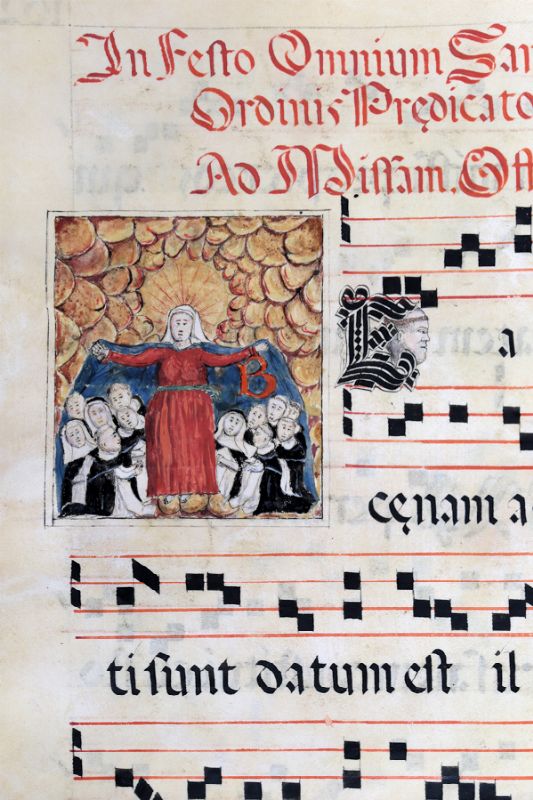 In Festo Omnium San
Ordinis Prędicato
Ad Missam. Off
B E a
cęnam a
ti sunt datum est il